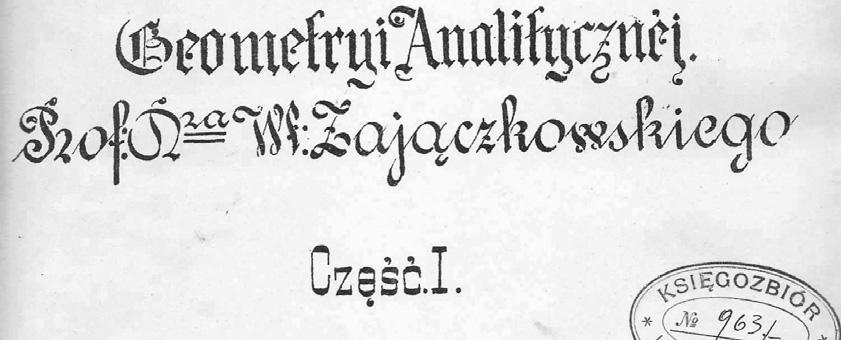 Geometryi Analitycznéj.
Prof: Dra Wł: Zajączkowskiego
Część.I.
KSIĘGOZBIÓR
№ 963/-